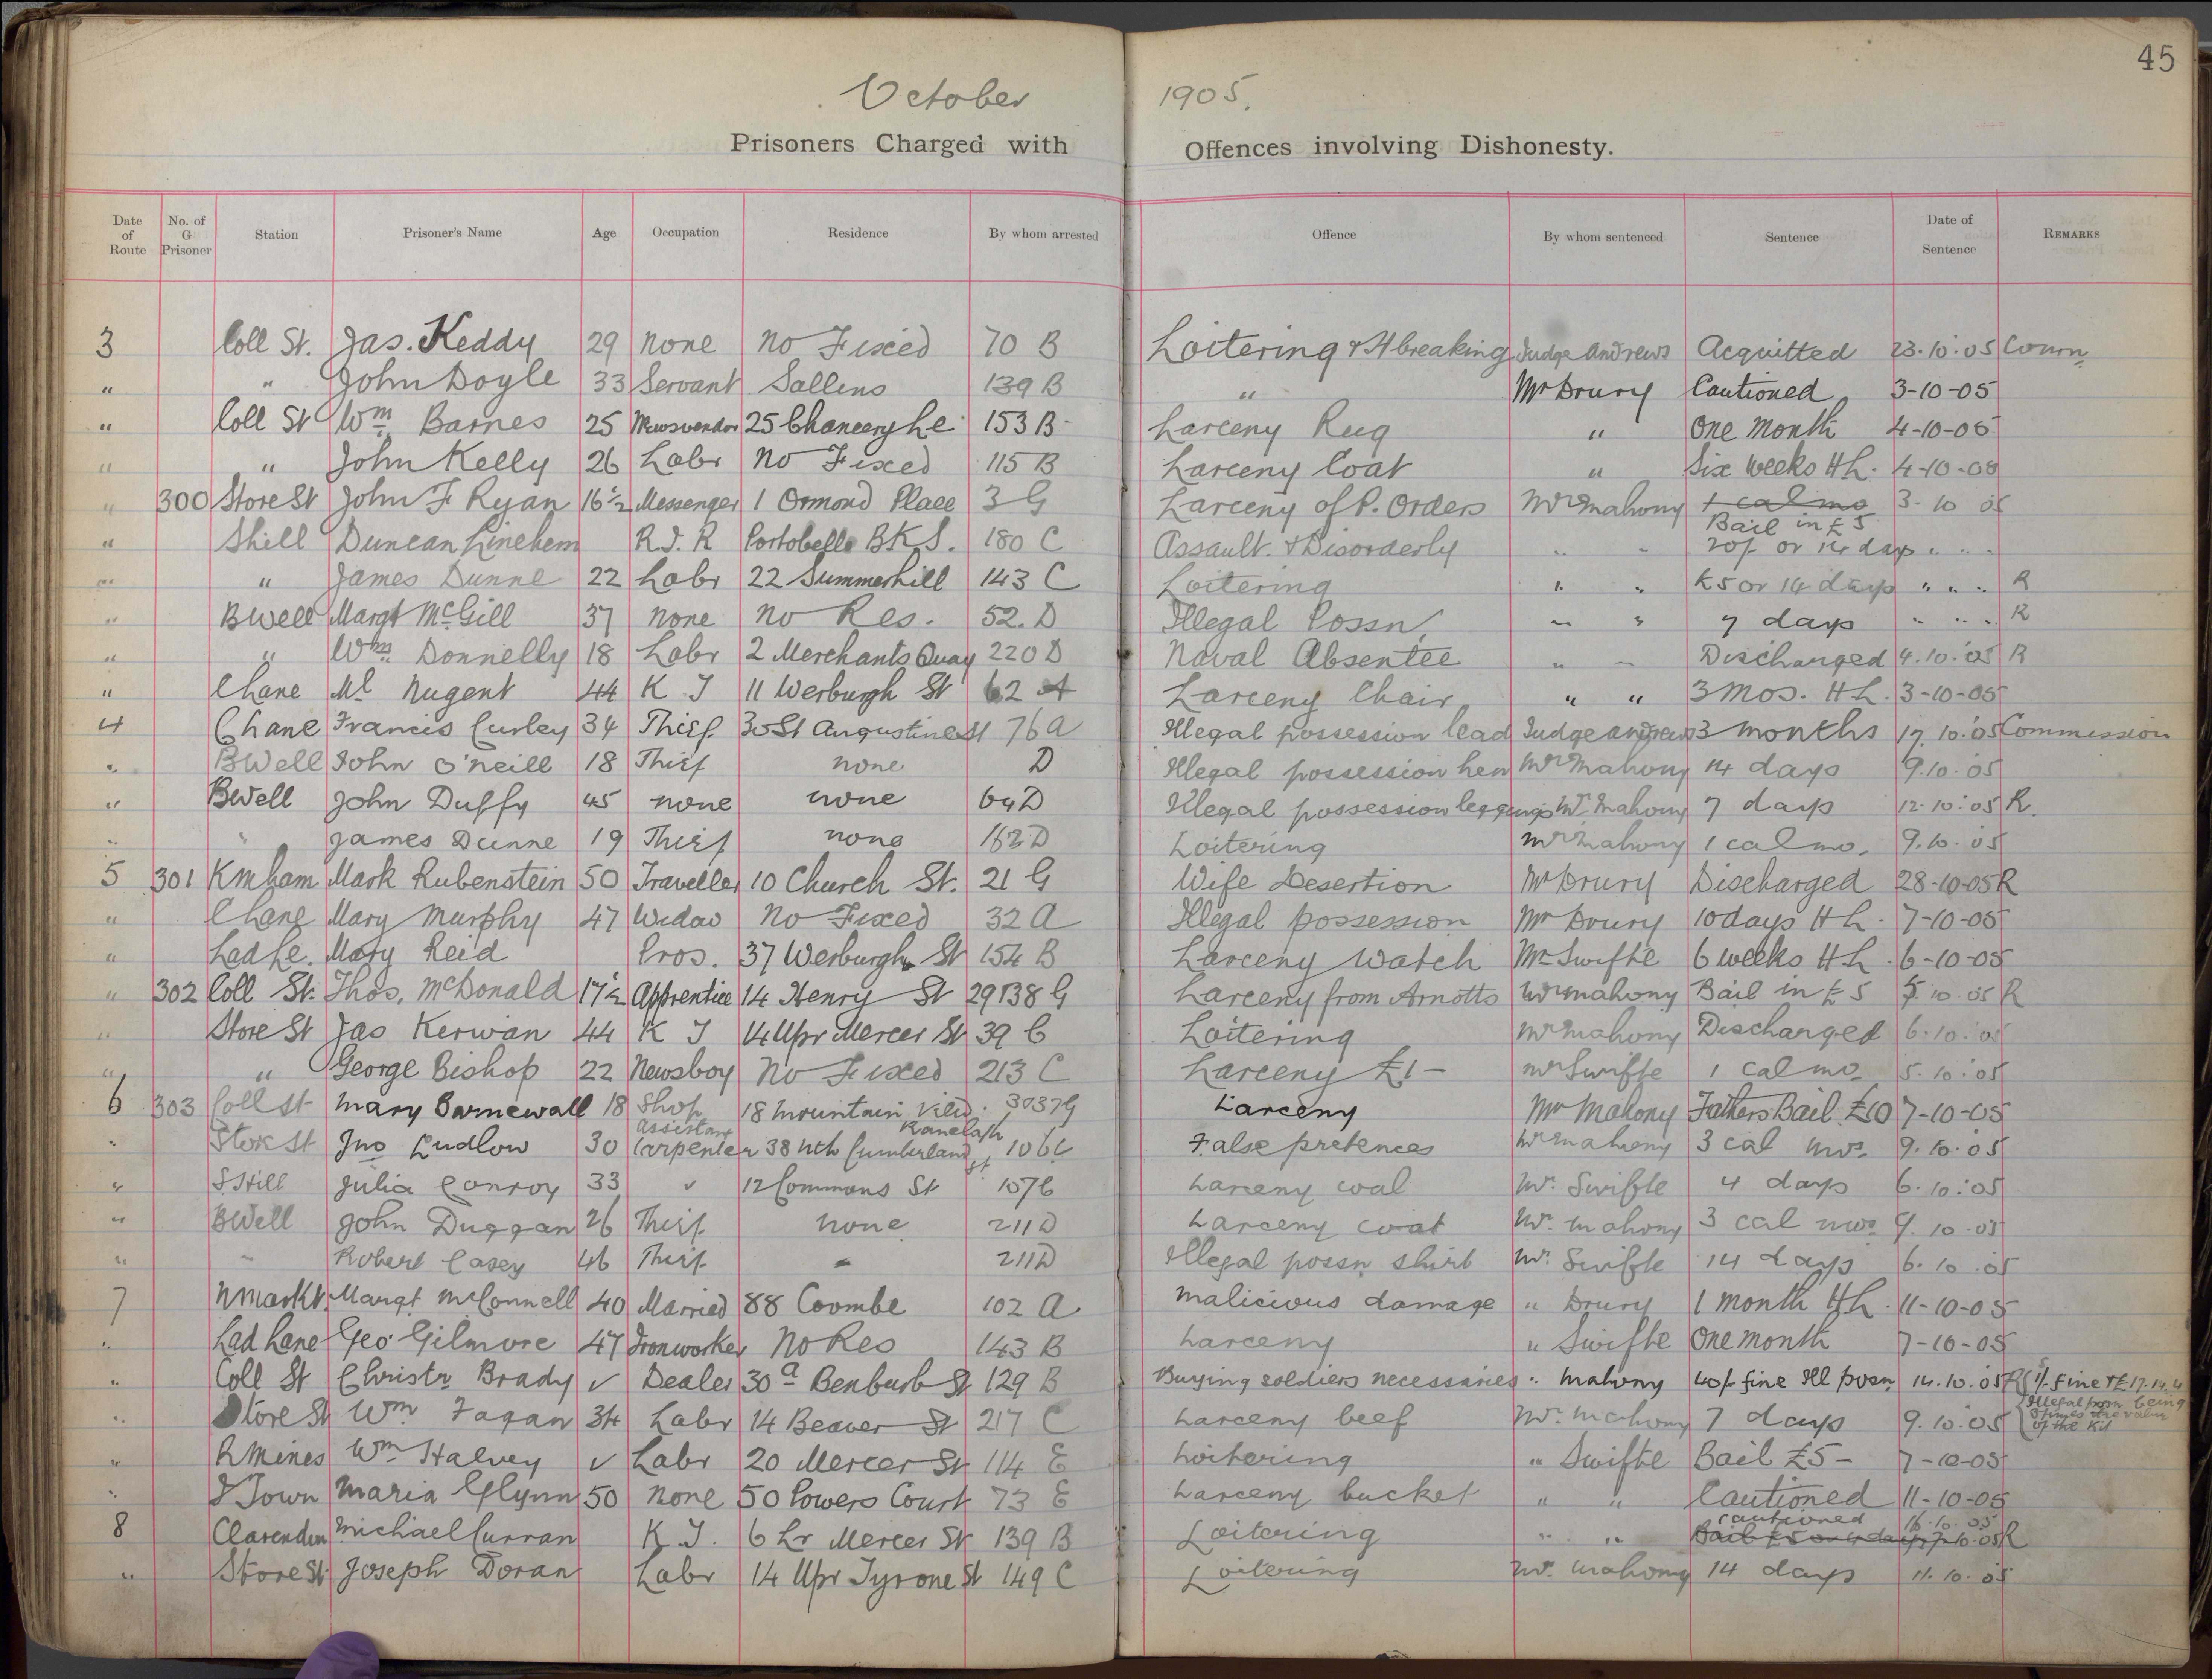 45
October 1905.
Prisoners Charged with Offences involving Dishonesty.
Date of Route No. of G Prisoner Station Prisoner's Name Age Occupation Residence By whom arrested Offence By whom sentenced Sentence Date of Sentence REMARKS
3 Coll St. Jas. Keddy 29 None No Fixed 70 B Loitering & H breaking Judge Andrews Acquitted 23.10.05 Comn
" " John Doyle 33 Servant Sallins 139 B " Mr Drury Cautioned 3-10-05
" Coll St Wm Barnes 25 Newsvendor 25 Chancery Le 153 B Larceny Rug " One Month 4-10-05
" " John Kelly 26 Labr No Fixed 115 B Larceny Coat " Six Weeks H L. 4-10-05
" 300 Store St John F Ryan 16½ Messenger 1 Ormond Place 3 G Larceny of P. Orders Mr Mahony 1 cal mo Bail in £5 3.10.05
" Shill Duncan Linehem R.I.R Portobello BKS. 180 C Assault. & Disorderly " " 20/- or 14 days " " "
" " James Dunne 22 Labr 22 Summerhill 143 C Loitering " " £5 or 14 days " " " R
" BWell Margt McGill 37 None No Res. 52. D Illegal Possn " " 7 days " " " R
" " Wm Donnelly 18 Labr 2 Merchants Quay 220 D Naval Absentee " " Discharged 4.10.05 R
" Chane Ml Nugent 44 K J 11 Werburgh St 62 A Larceny Chair " " 3 Mos. H L. 3-10-05
4 Chane Francis Curley 34 Thief 30 St Augustine St 76 a Illegal possession lead Judge Andrews 3 months 17.10.05 Commission
" BWell John O'Neill 18 Thief none D Illegal possession hen Mr Mahony 14 days 9.10.05
" Bwell John Duffy 45 none none 64 D Illegal possession leggings Mr Mahony 7 days 12.10.05 R.
" " James Dunne 19 Thief none 162 D Loitering Mr Mahony 1 cal mo. 9.10.05
5 301 Kmham Mark Rubenstein 50 Traveller 10 Church St. 21 G Wife Desertion Mr Drury Discharged 28-10-05 R
" Chane Mary Murphy 47 Widow No Fixed 32 a Illegal possession Mr Drury 10 days H L. 7-10-05
" Lad Le. Mary Reid Pros. 37 Werburgh St 154 B Larceny Watch Mr Swifte 6 weeks H L. 6-10-05
" 302 Coll St. Thos. McDonald 17½ Apprentice 14 Henry St 29 & 38 G Larceny from Arnotts Mr Mahony Bail in £5 5.10.05 R
" Store St Jas Kerwan 44 K J 14 Upr Mercer St 39 C Loitering Mr Mahony Discharged 6.10.05
" " George Bishop 22 Newsboy No Fixed 213 C Larceny £1 - Mr Swifte 1 cal mo. 5.10.05
6 303 Coll St Mary Barnewall 18 Shop Assistant 18 Mountain View Ranelagh 30 37 G Larceny Mr Mahony Fathers Bail £10 7-10-05
" Store St Jno Ludlow 30 Carpenter 38 Nth Cumberland St 106 C False pretences Mr Mahony 3 cal mos. 9.10.05
" S Hill Julia Conroy 33 v 12 Commons St 107 C Larceny coal Mr. Swifte 4 days 6.10.05
" BWell John Duggan 26 Thief none 211 D Larceny coat Mr. Mahony 3 cal mos 9.10.05
" " Robert Casey 46 Thief " 211 D Illegal possn shirt Mr. Swifte 14 days 6.10.05
7 Nmarkt Margt McConnell 40 Married 88 Coombe 102 a Malicious damage " Drury 1 month H L. 11-10-05
" Lad Lane Geo Gilmore 47 Ironworker No Res 143 B Larceny " Swifte One month 7-10-05
" Coll St Christr Brady v Dealer 30a Benburb St 129 B Buying soldiers necessaries " Mahony 40/- fine Ill possn 14.10.05 R 1/- fine & £17.14.4
" Store St Wm Fagan 34 Labr 14 Beaver St 217 C Larceny beef Mr. Mahony 7 days 9.10.05 Illegal possn being 3 times the value of the Kit
" RMines Wm Halvey v Labr 20 Mercer St 114 E Loitering " Swifte Bail £5 - 7-10-05
" I Town Maria Glynn 50 None 50 Powers Court 73 E Larceny bucket " " Cautioned 11-10-05
8 Clarendon Michael Curran K.J. 6 Lr Mercer St 139 B Loitering " " cautioned 16.10.05 Bail £5 or 4 days 7.10.05 R
" Store St Joseph Doran Labr 14 Upr Tyrone St 149 C Loitering Mr. Mahony 14 days 11.10.05